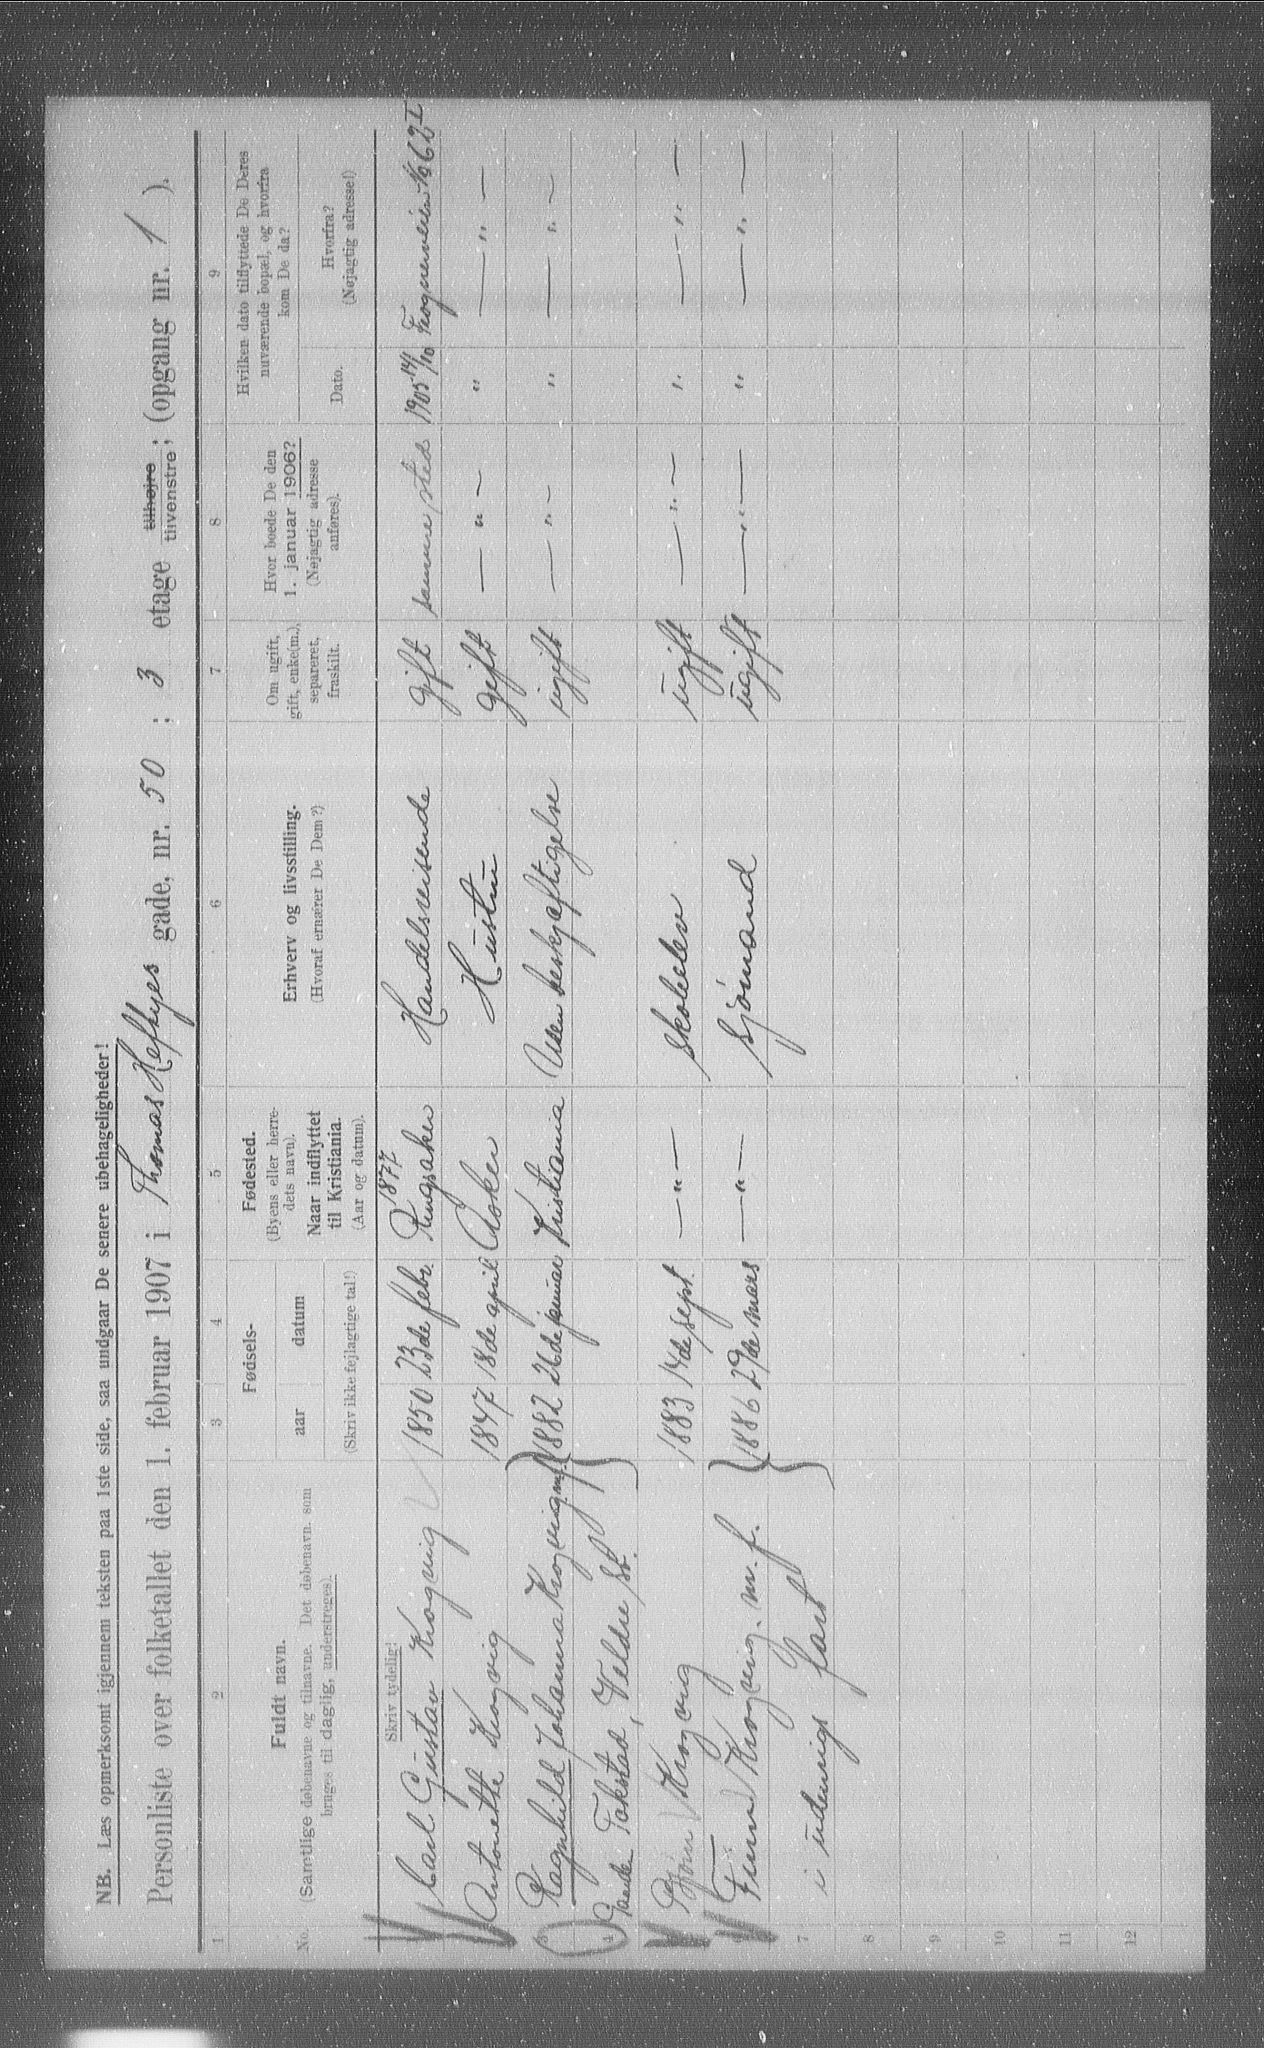 NB. Læs opmerksomt igjennem teksten paa 1ste side, saa undgaar De senere ubehageligheder!
Personliste over folketallet den 1. februar 1907 i Thomas Heftyes gade, nr. 50 ; 3 etage tilhøjre tilvenstre; (opgang nr. 1 ).
1 2 3 4 5 6 7 8 9
No.
Fuldt navn.
(Samtlige døbenavne og tilnavne. Det døbenavn, som bruges til daglig, understreges).
Skriv tydelig!
Fødsels-
aar datum
(Skriv ikke fejlagtige tal!)
Fødested.
(Byens eller herredets navn).
Naar indflyttet til Kristiania.
(Aar og datum).
Erhverv og livsstilling.
(Hvoraf ernærer De Dem?)
Om ugift, gift, enke(m.), separeret, fraskilt.
Hvor boede De den 1. januar 1906?
(Nøjagtig adresse anføres).
Hvilken dato tilflyttede De Deres nuværende bopæl, og hvorfra kom De da?
Dato.
Hvorfra?
(Nøjagtig adresse!)
Carl Gustav Krogvig 1850 23de febr. 1877 Ringsaker Handelsreisende gift samme sted 1905 14/10 Frogenerveien 62 I
Antonette Krogvig 1847 18de april Asker Hustru gift — " — " — " —
3 Ragnhild Johanna Krogvig m.f. 1882 26de januar Kristiania Uden beskjæftigelse ugift — " — " — " —
4 Tokstad, Veldre st.
Bjørn Krogvig 1883 14de sept. — " — skoleelev ugift — " — " — " —
Finn Krogvig. m. f. 1886 29de mars — " — sjömand ugift — " — " — " —
7 i udenrigs fart
8
9
10
11
12